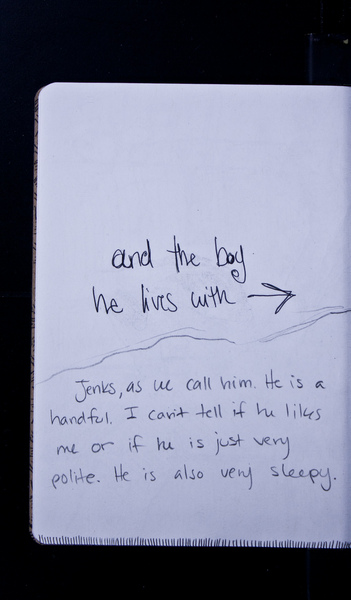 and the boy
he lives with →
Jenks, as we call him. He is a
handful. I can't tell if he likes
me or if he is just very
polite. He is also very sleepy.